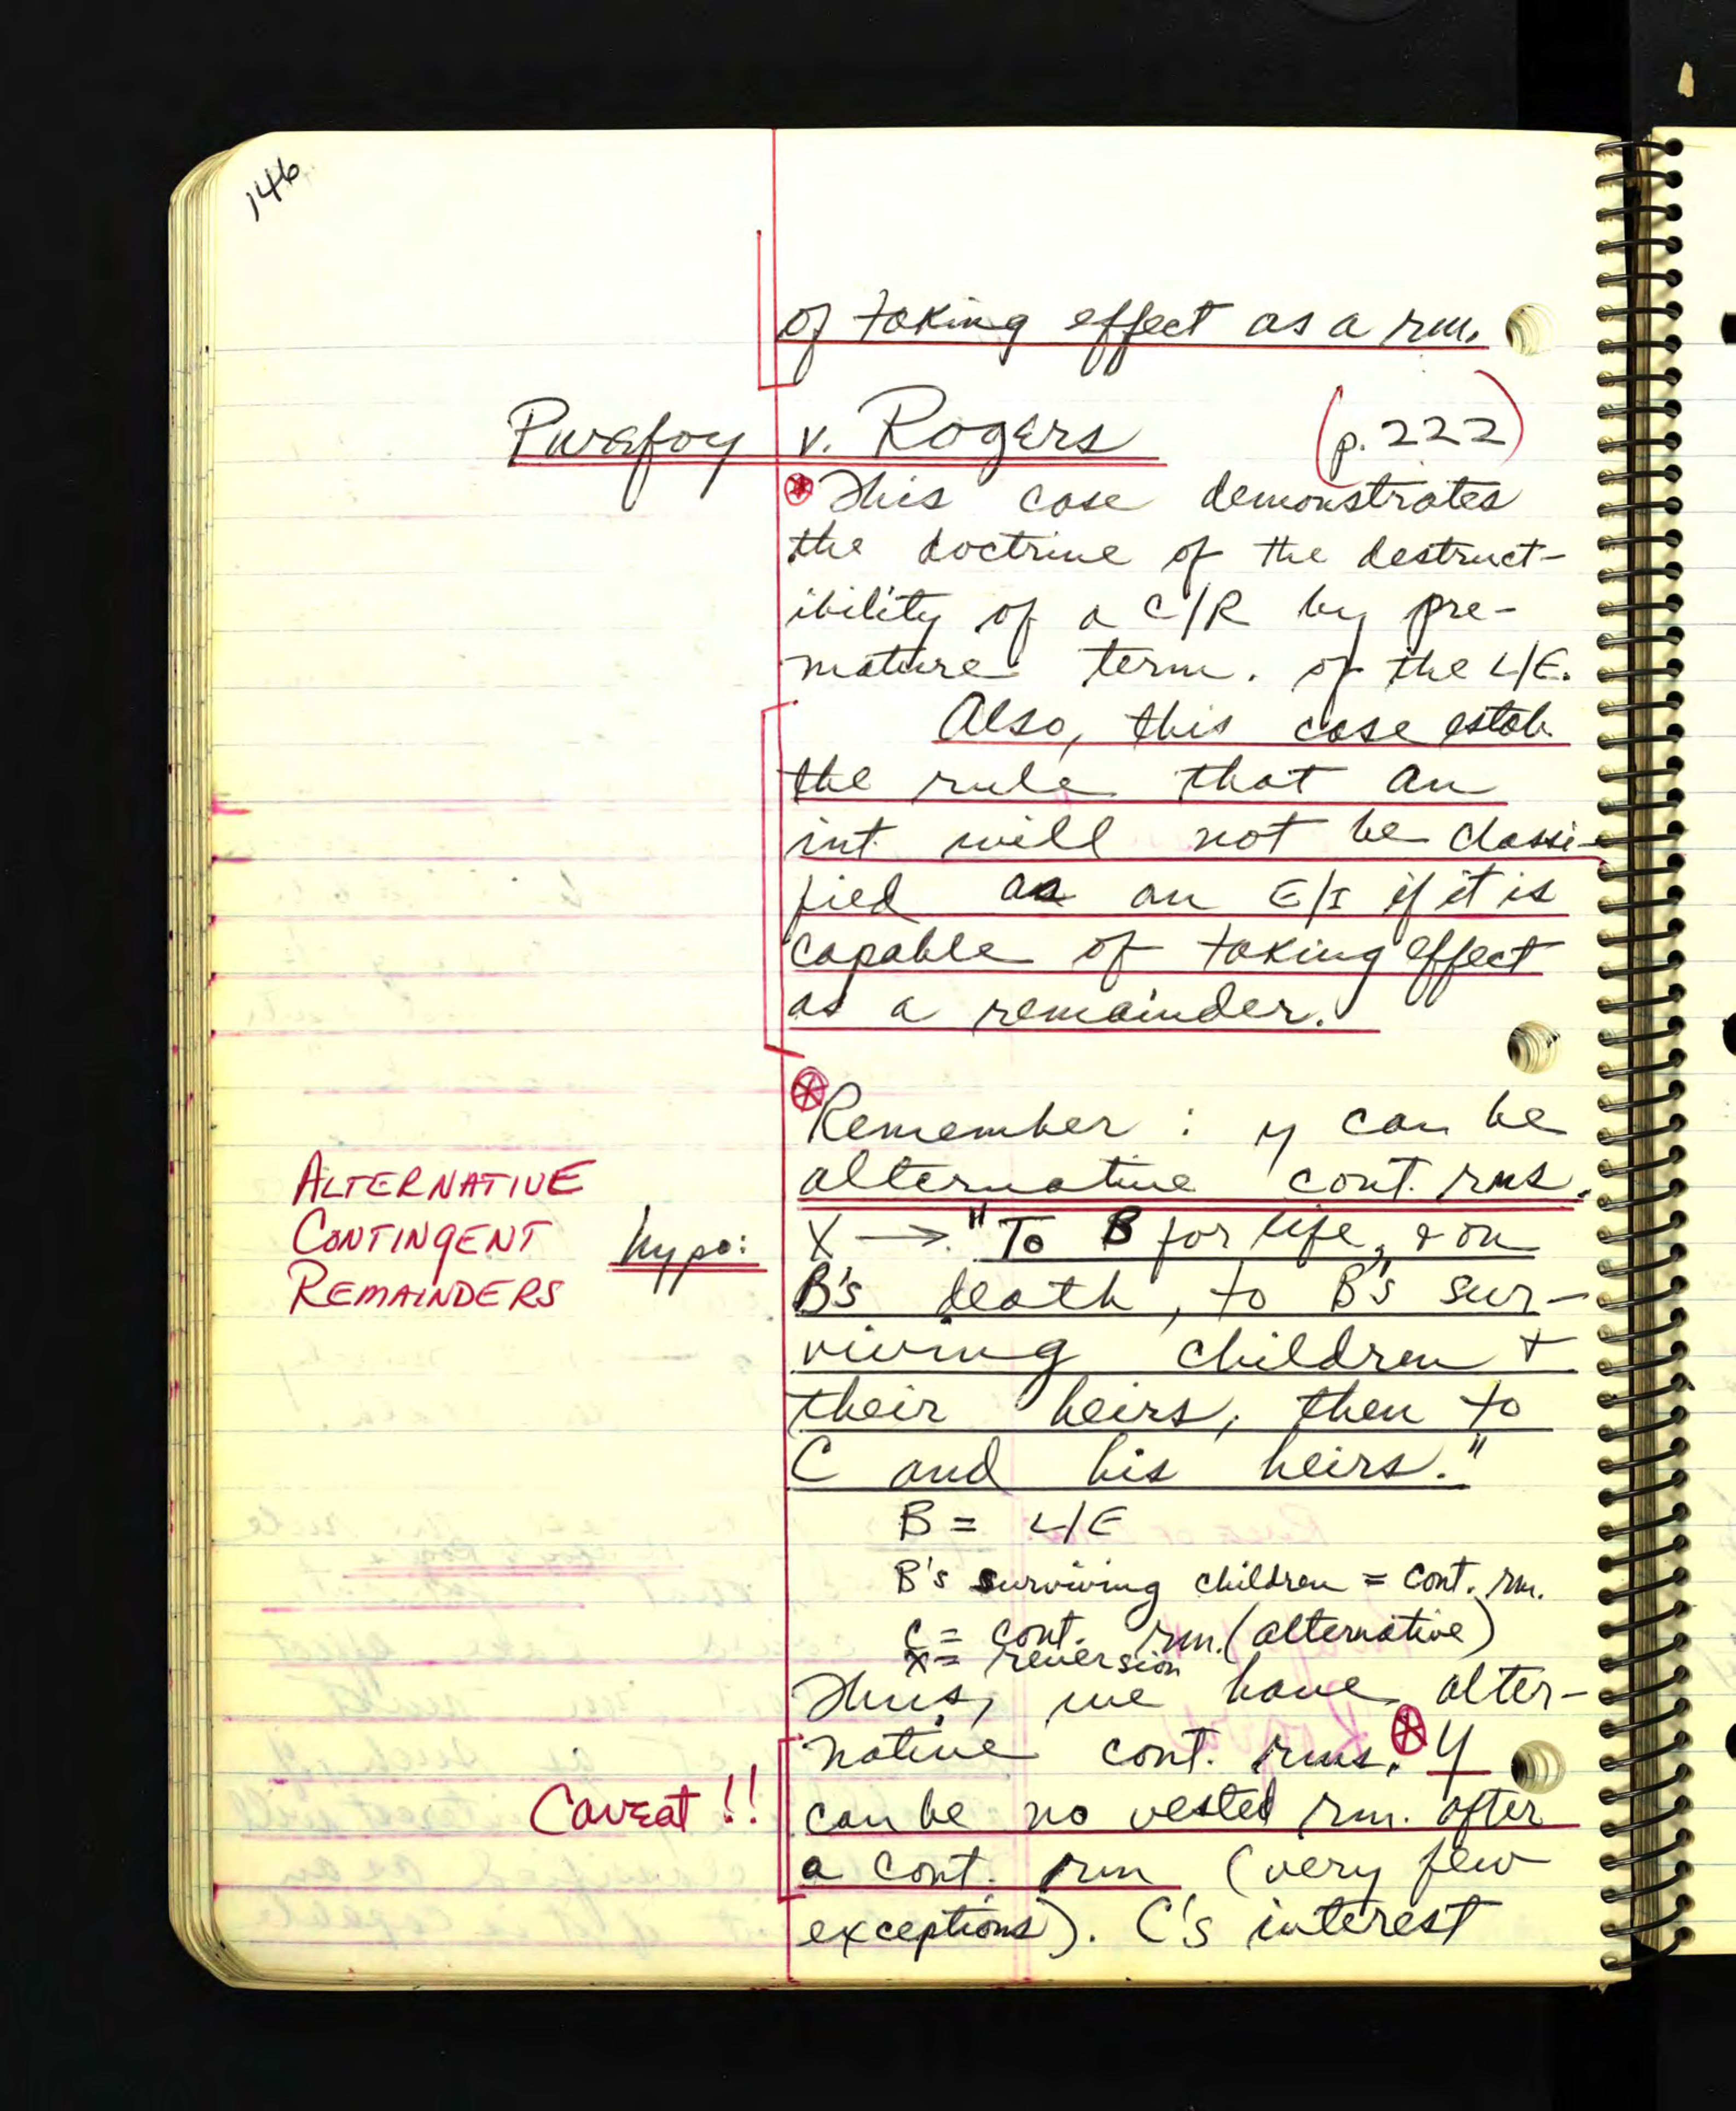 146
of taking effect as a rm.
Purefoy v. Rogers (p. 222)
This case demonstrates
the doctrine of the destruct-
ibility of a C/R by pre-
mature term. of the L/E.
Also, this case estab.
the rule that an
int. will not be classi-
fied as an E/I if it is
capable of taking effect
as a remainder.
Remember : y can be
alternative cont. rms.
ALTERNATIVE
CONTINGENT
REMAINDERS
hypo: X → "To B for life, & on
B's death, to B's sur-
viving children +
their heirs, then to
C and his heirs."
B = L/E
B's surviving children = cont. rm.
C = cont. rm. (alternative)
X = reversion
Thus, we have alter-
native cont. rms. y
Caveat !! can be no vested rm. after
a cont. rm (very few
exceptions). C's interest